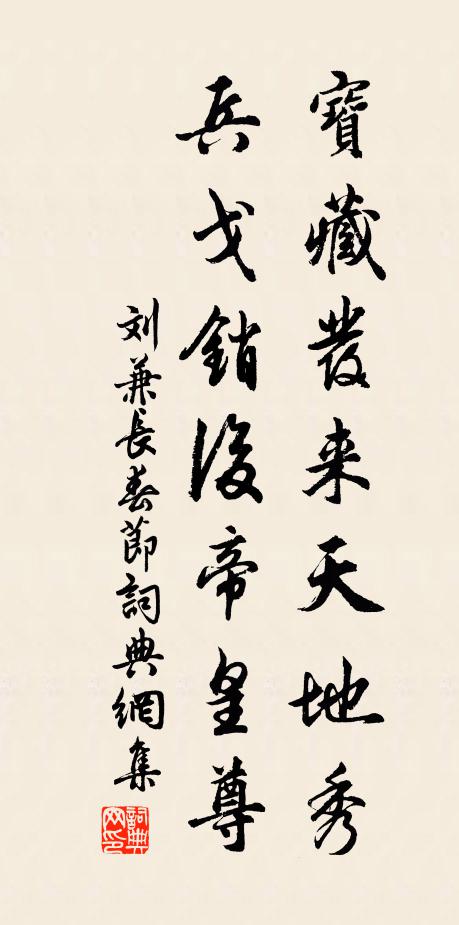 寶藏發来天地秀
兵戈銷後帝皇尊
刘兼長春節詞典網集
詞典网印